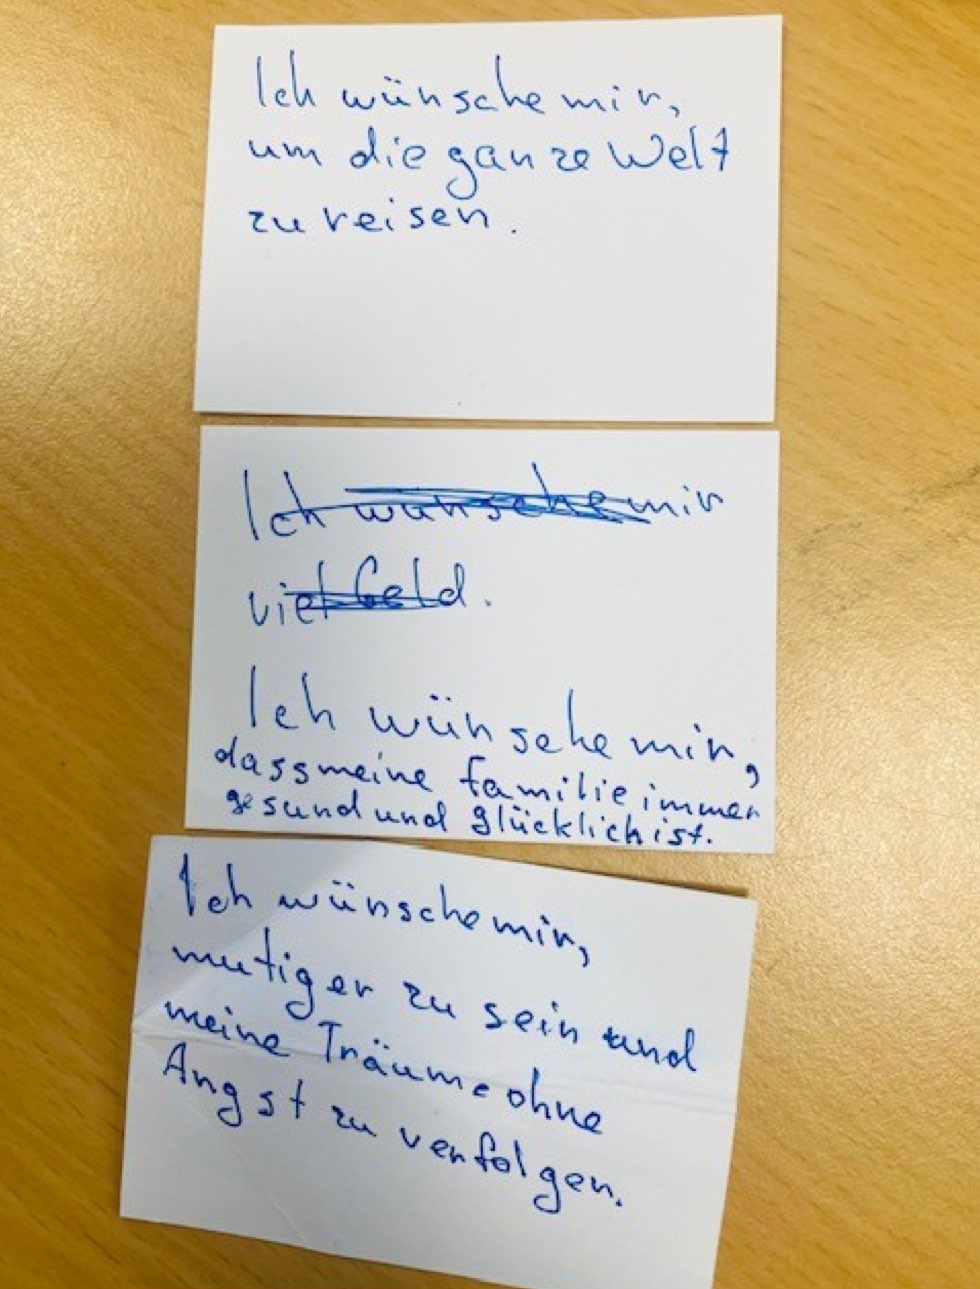 Ich wünsche mir,
um die ganze Welt
zu reisen.
Ich wünsche mir
viel Geld.
Ich wünsche mir,
dass meine Familie immer
gesund und glücklich ist.
Ich wünsche mir,
mutiger zu sein und
meine Träume ohne
Angst zu verfolgen.